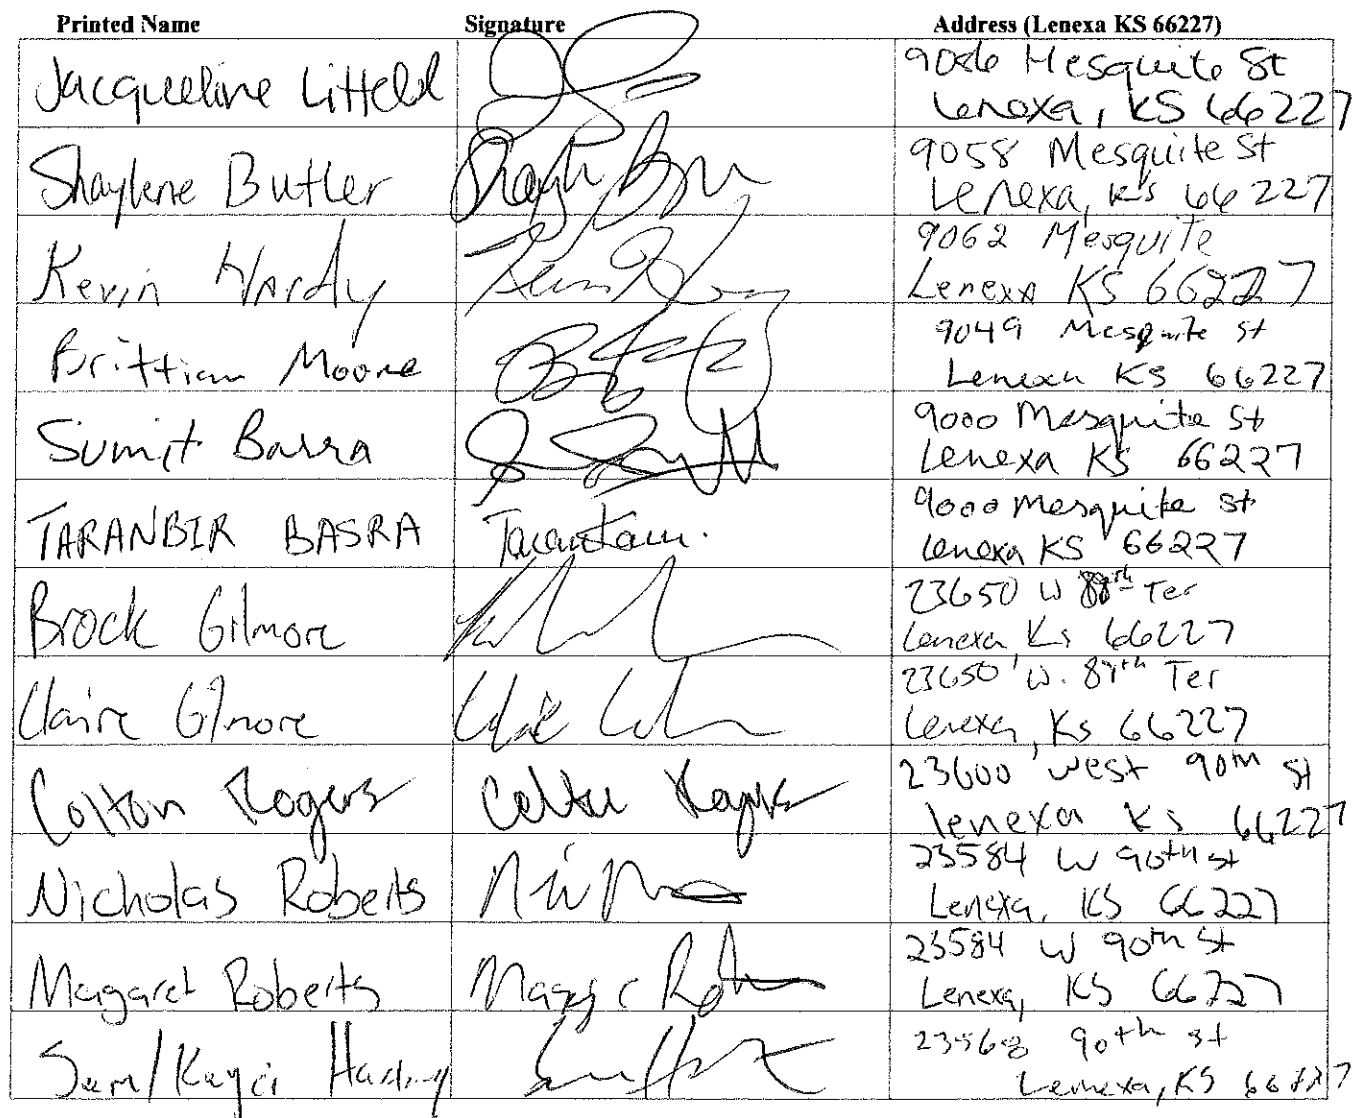 Printed Name Signature Address (Lenexa KS 66227)
Jacqueline 9056 Mesquite St
Lenexa, KS 66227
Shaylene Butler 9058 Mesquite St
Lenexa, KS 66227
Kevin Hardy Kevin 9062 Mesquite
Lenexa KS 66227
Brittian Moore 9049 Mesquite St
Lenexa KS 66227
Sumit Basra 9000 Mesquite St
Lenexa KS 66227
TARANBIR BASRA 9000 Mesquite St
Lenexa KS 66227
Brock Gilmore 23650 W Ter
Lenexa, Ks 66227
Claire Gilmore 23650 W. 89th Ter
Lenexa, Ks 66227
Colton Rogers Colton Rogers 23600 West 90th St
lenexa Ks 66227
Nicholas Roberts 23584 W 90th St
Lenexa, KS 66227
Magaret Roberts Maggie 23584 W 90th St
Lenexa, KS 66227
Sam/Kayci 23568 90th St
Lenexa, KS 66227